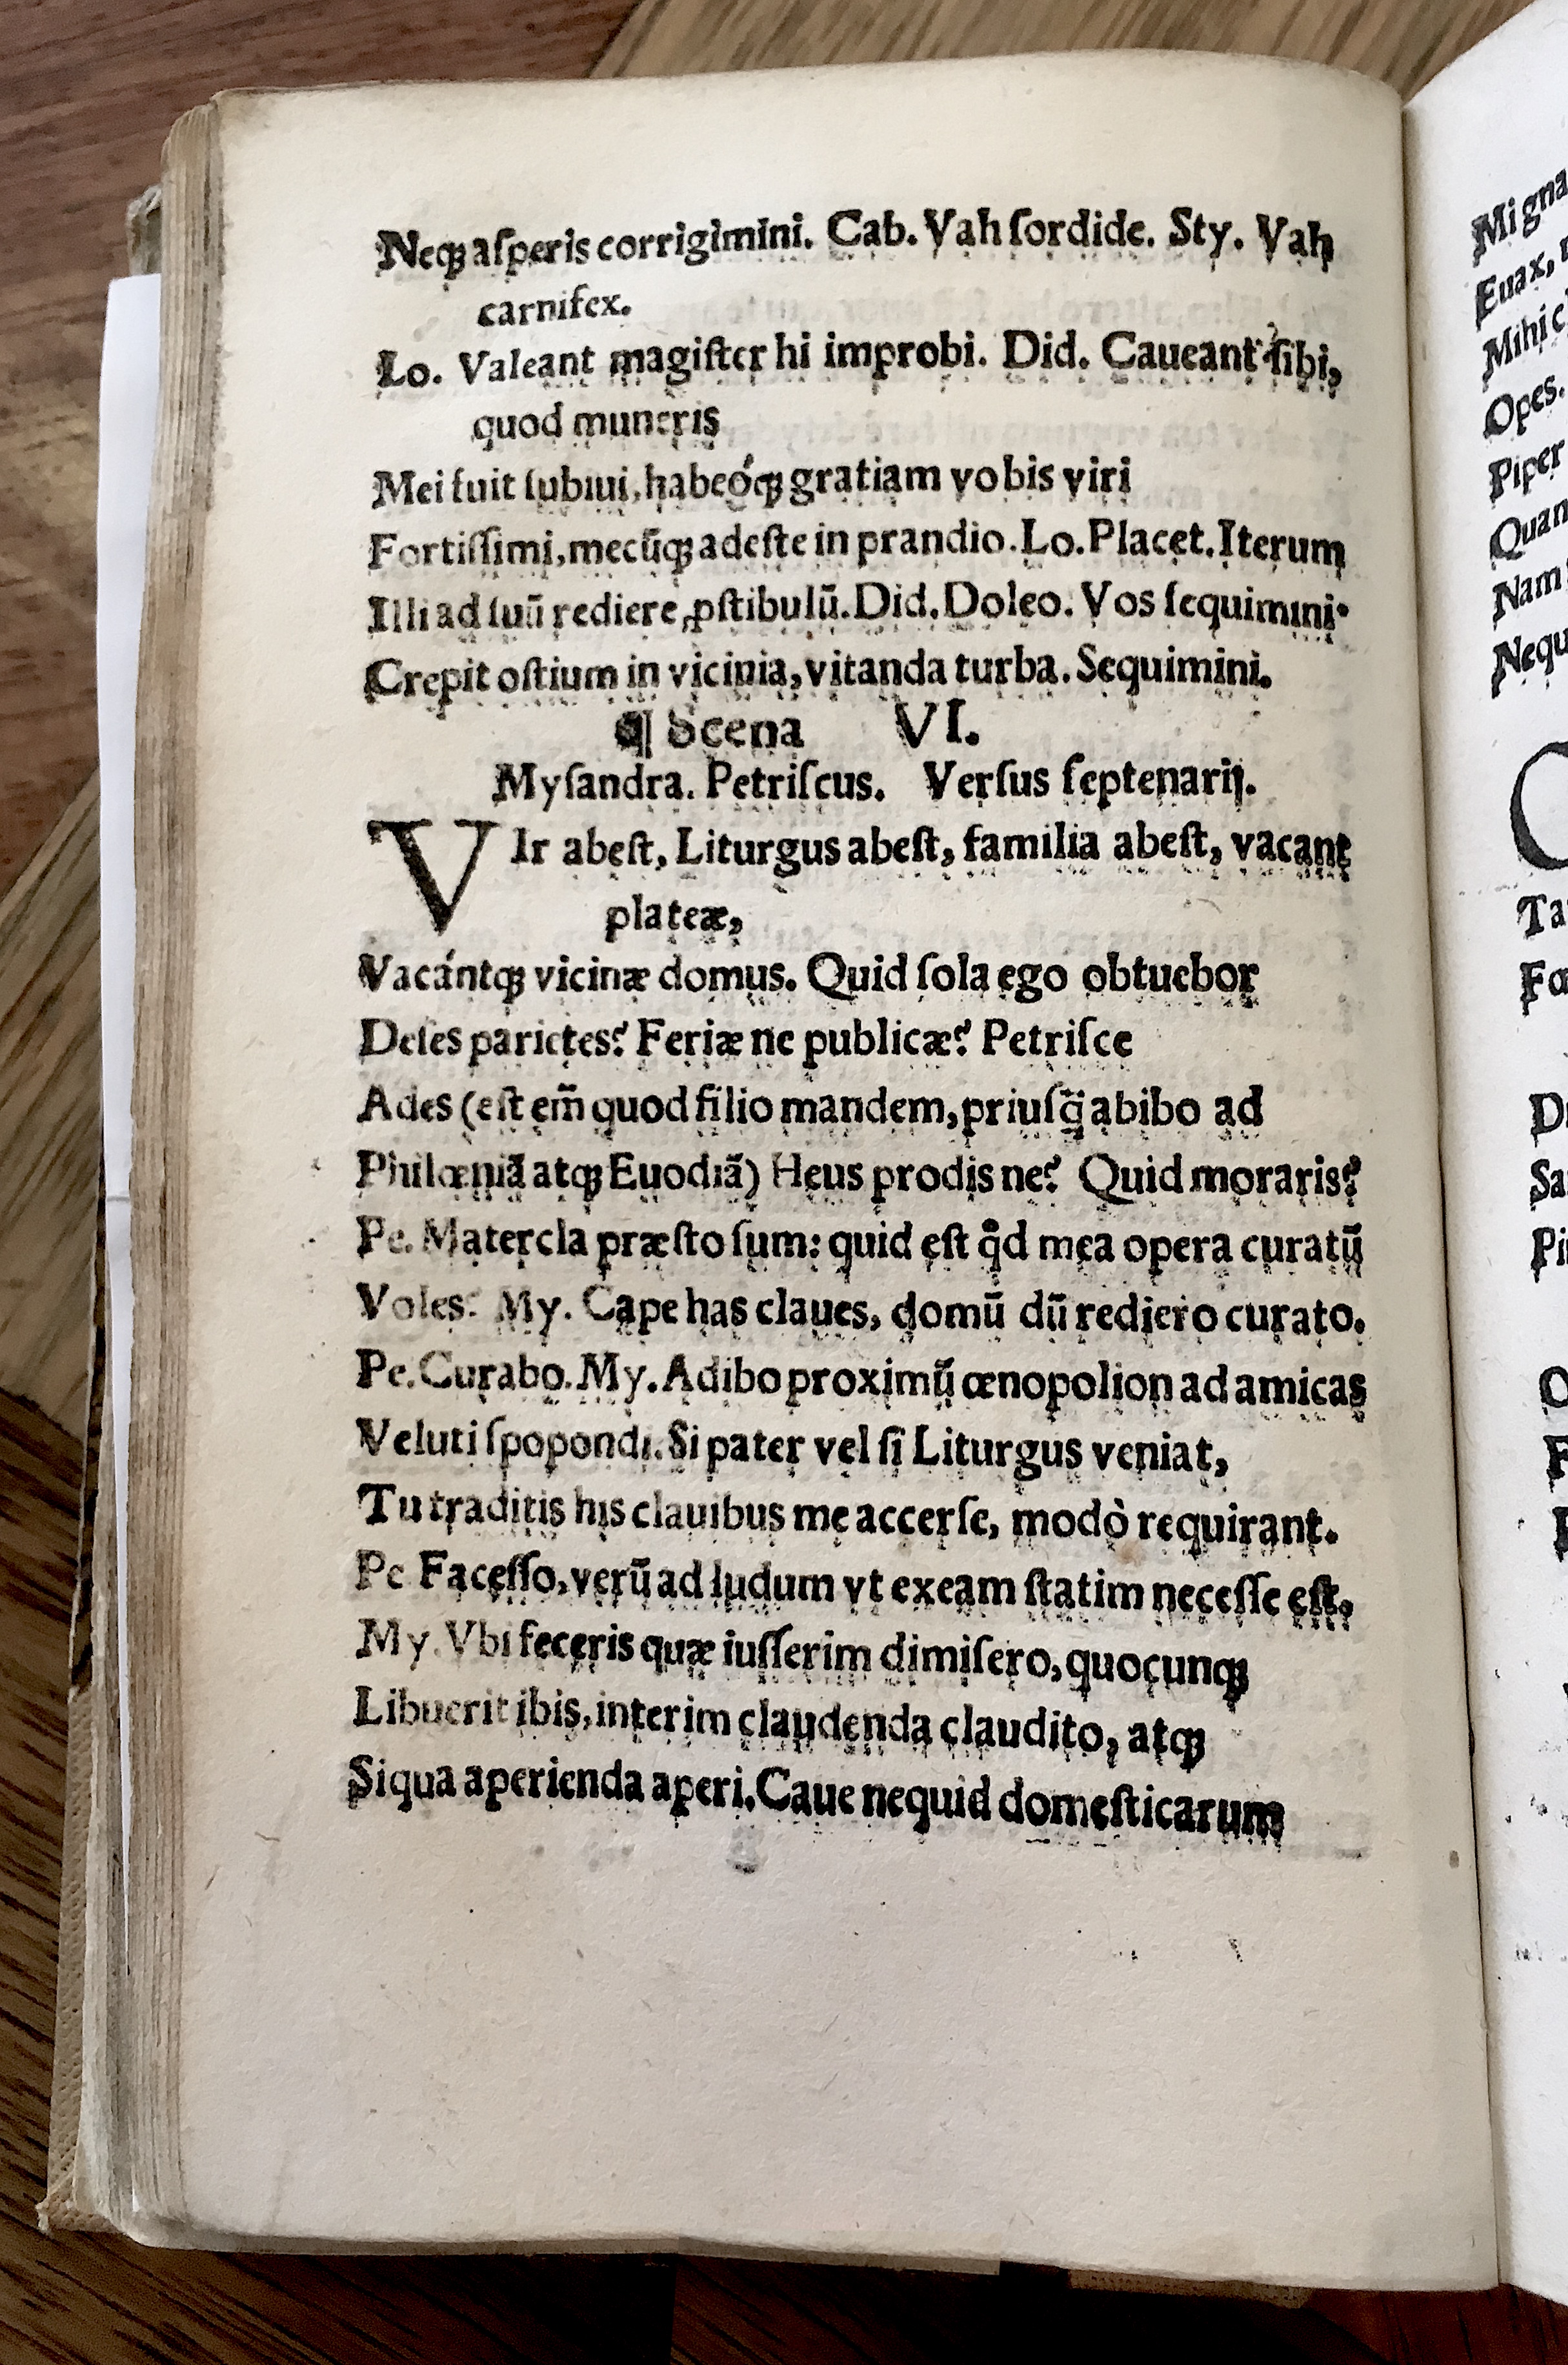 Neqꝫ aſperis corrigimini. Cab. Vah ſordide. Sty. Vah
carnifex.
Lo. Valeant magiſter hi improbi. Did. Caueant ſibi,
quod muneris
Mei fuit ſubiui, habeóqꝫ gratiam vobis viri
Fortiſſimi, mecũqꝫ adeſte in prandio. Lo. Placet. Iterum
Illi ad ſuũ rediere ꝓſtibulũ. Did. Doleo. Vos ſequimini.
Crepit oſtium in vicinia, vitanda turba. Sequimini.
¶ Scena VI.
Myſandra. Petriſcus. Verſus ſeptenarij.
VIr abeſt, Liturgus abeſt, familia abeſt, vacant
plateæ,
Vacántqꝫ vicinæ domus. Quid ſola ego obtuebor
Deſes parietes? Feriæ ne publicæ? Petriſce
Ades (eſt em̃ quod filio mandem, priuſq̃ abibo ad
Philœniã atqꝫ Euodiã) Heus prodis ne? Quid moraris?
Pe. Matercla præſto ſum: quid eſt qd mea opera curatũ
Voles? My. Cape has claues, domũ dũ rediero curato.
Pe. Curabo. My. Adibo proximũ œnopolion ad amicas
Veluti ſpopondi. Si pater vel ſi Liturgus veniat,
Tu traditis his clauibus me accerſe, modò requirant.
Pe Faceſſo, verũ ad ludum vt exeam ſtatim neceſſe eſt,
My. Vbi feceris quæ iuſſerim dimiſero, quocunqꝫ
Libuerit ibis, interim claudenda claudito, atqꝫ
Siqua aperienda aperi. Caue nequid domeſticarum
Mi gna
Euax,
Mihi c
Opes.
Piper
Quan
Nam
Nequ
C
Ta
Fœ
D
Sa
Pi